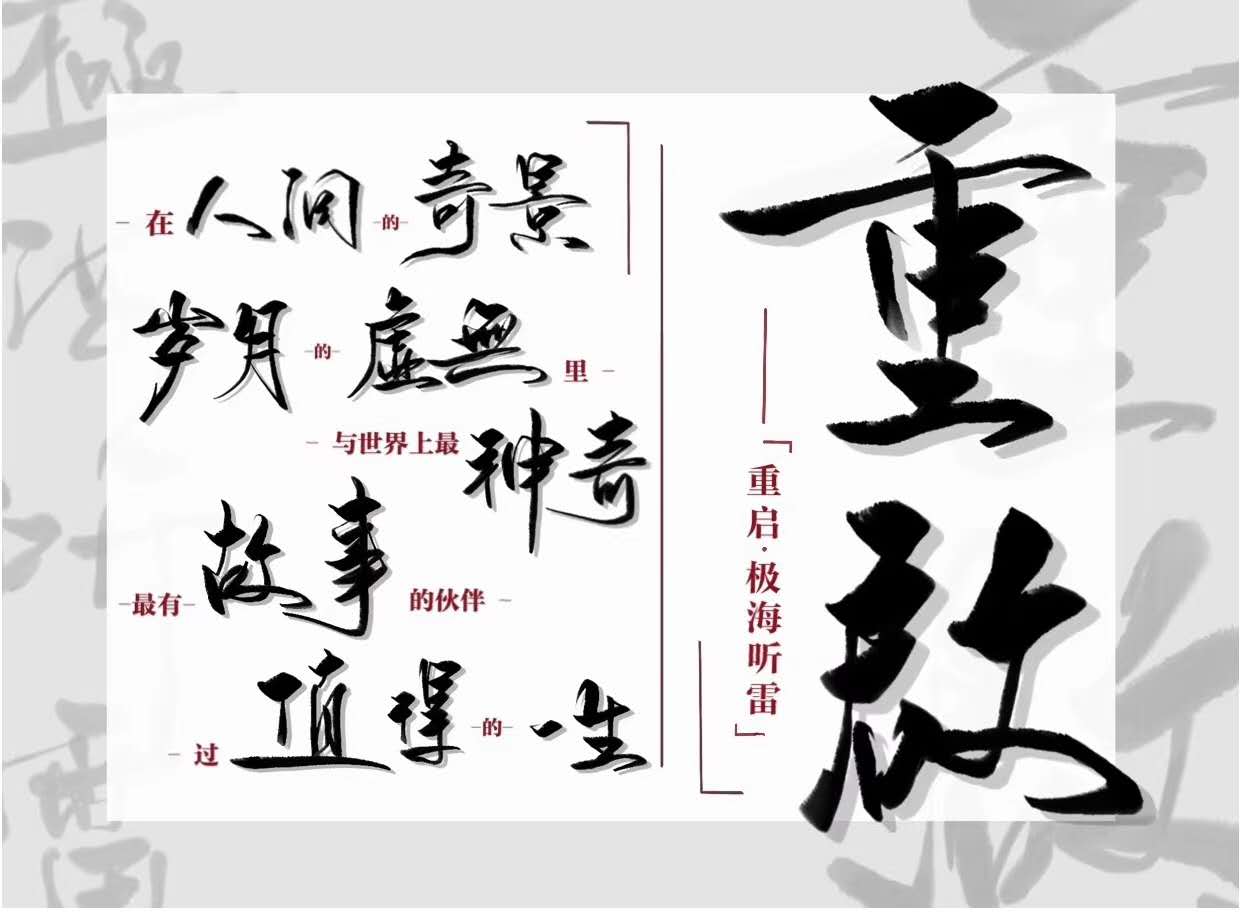 在人间的奇景
岁月的虚無里
与世界上最神奇
最有故事的伙伴
过值得的一生
重啟
「重启·极海听雷」